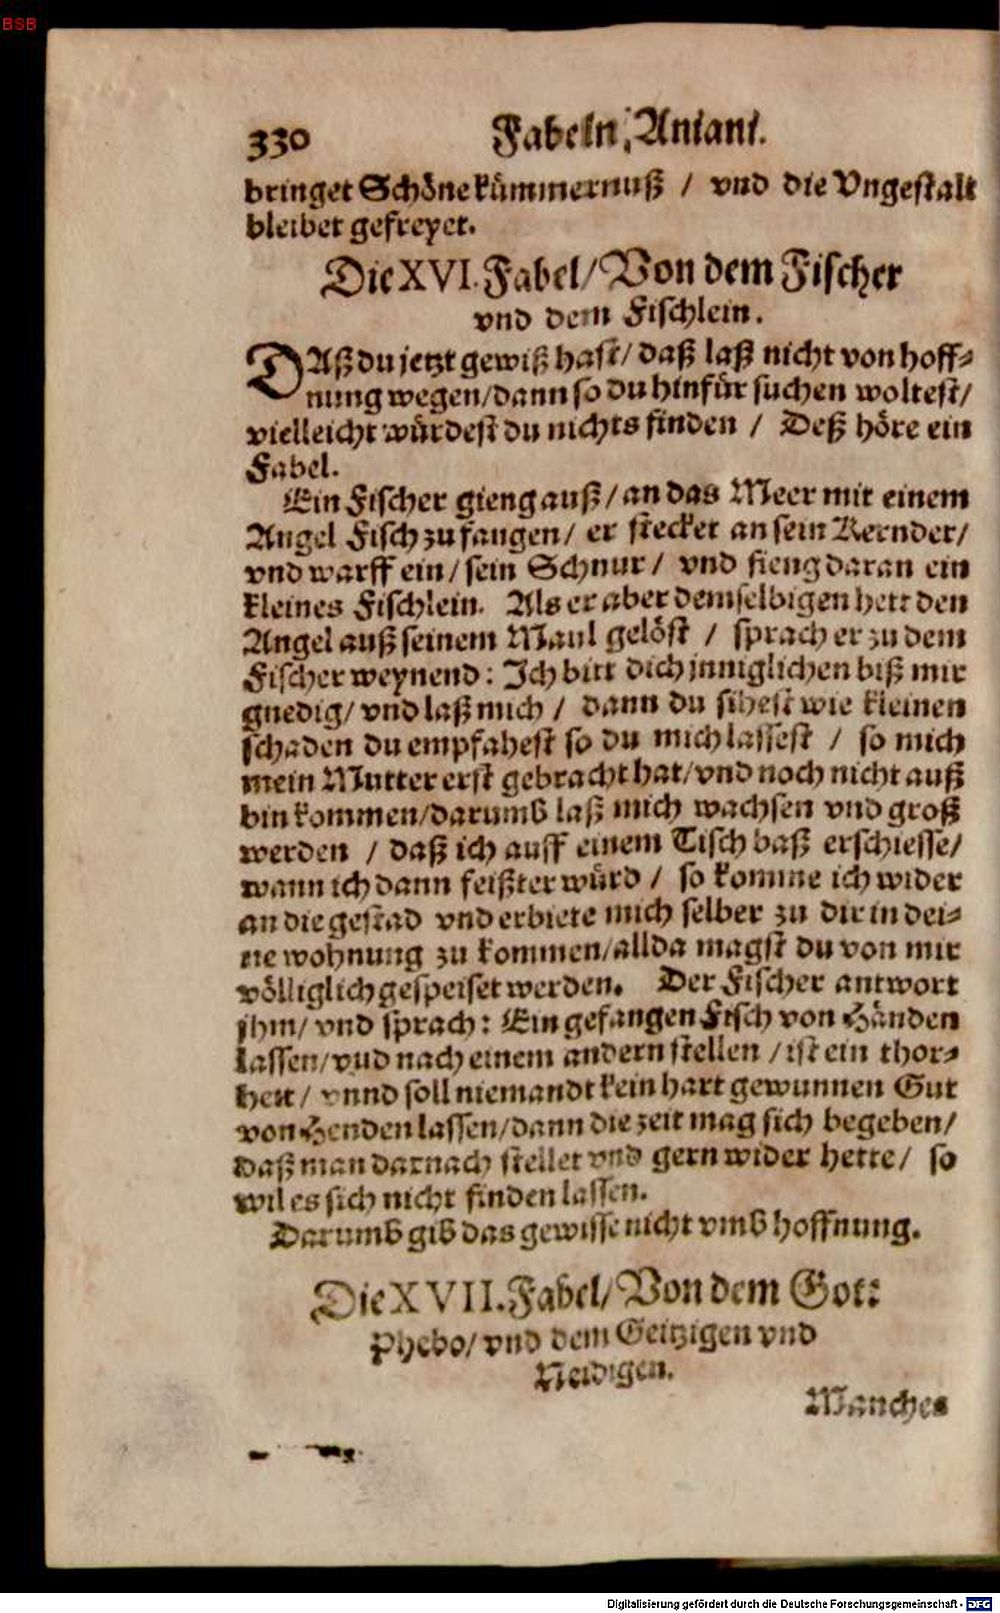 BSB
330 Fabeln, Aniani.
bringet Schöne kümmernuß / vnd die Vngestalt
bleibet gefreyet.
Die XVI. Fabel/ Von dem Fischer
vnd dem Fischlein.
DAß du jetzt gewiß hast/ daß laß nicht von hoff-
nung wegen/ dann so du hinfür suchen woltest/
vielleicht würdest du nichts finden / Deß höre ein
Fabel.
Ein Fischer gieng auß/ an das Meer mit einem
Angel Fisch zu fangen/ er stecket an sein Kernder/
vnd warff ein/ sein Schnur/ vnd fieng daran ein
kleines Fischlein. Als er aber demselbigen hett den
Angel auß seinem Maul gelöst / sprach er zu dem
Fischer weynend: Ich bitt dich inniglichen biß mir
gnedig/ vnd laß mich / dann du sihest wie kleinen
schaden du empfahest so du mich lassest / so mich
mein Mutter erst gebracht hat/ vnd noch nicht auß
bin kommen/ darumb laß mich wachsen vnd groß
werden / daß ich auff einem Tisch baß erschiesse/
wann ich dann feißter würd / so komme ich wider
an die gestad vnd erbiete mich selber zu dir in dei-
ne wohnung zu kommen/ allda magst du von mir
völliglich gespeiset werden. Der Fischer antwort
jhm/ vnd sprach: Ein gefangen Fisch von Händen
lassen/ vnd nach einem andern stellen / ist ein thor-
heit/ vnnd soll niemandt kein hart gewunnen Gut
von Henden lassen/ dann die zeit mag sich begeben/
daß man darnach stellet vnd gern wider hette/ so
wil es sich nicht finden lassen.
Darumb gib das gewisse nicht vmb hoffnung.
Die XVII. Fabel/ Von dem Gott
Phebo/ vnd dem Geitzigen vnd
Neidigen.
Manches
Digitalisierung gefördert durch die Deutsche Forschungsgemeinschaft - DFG